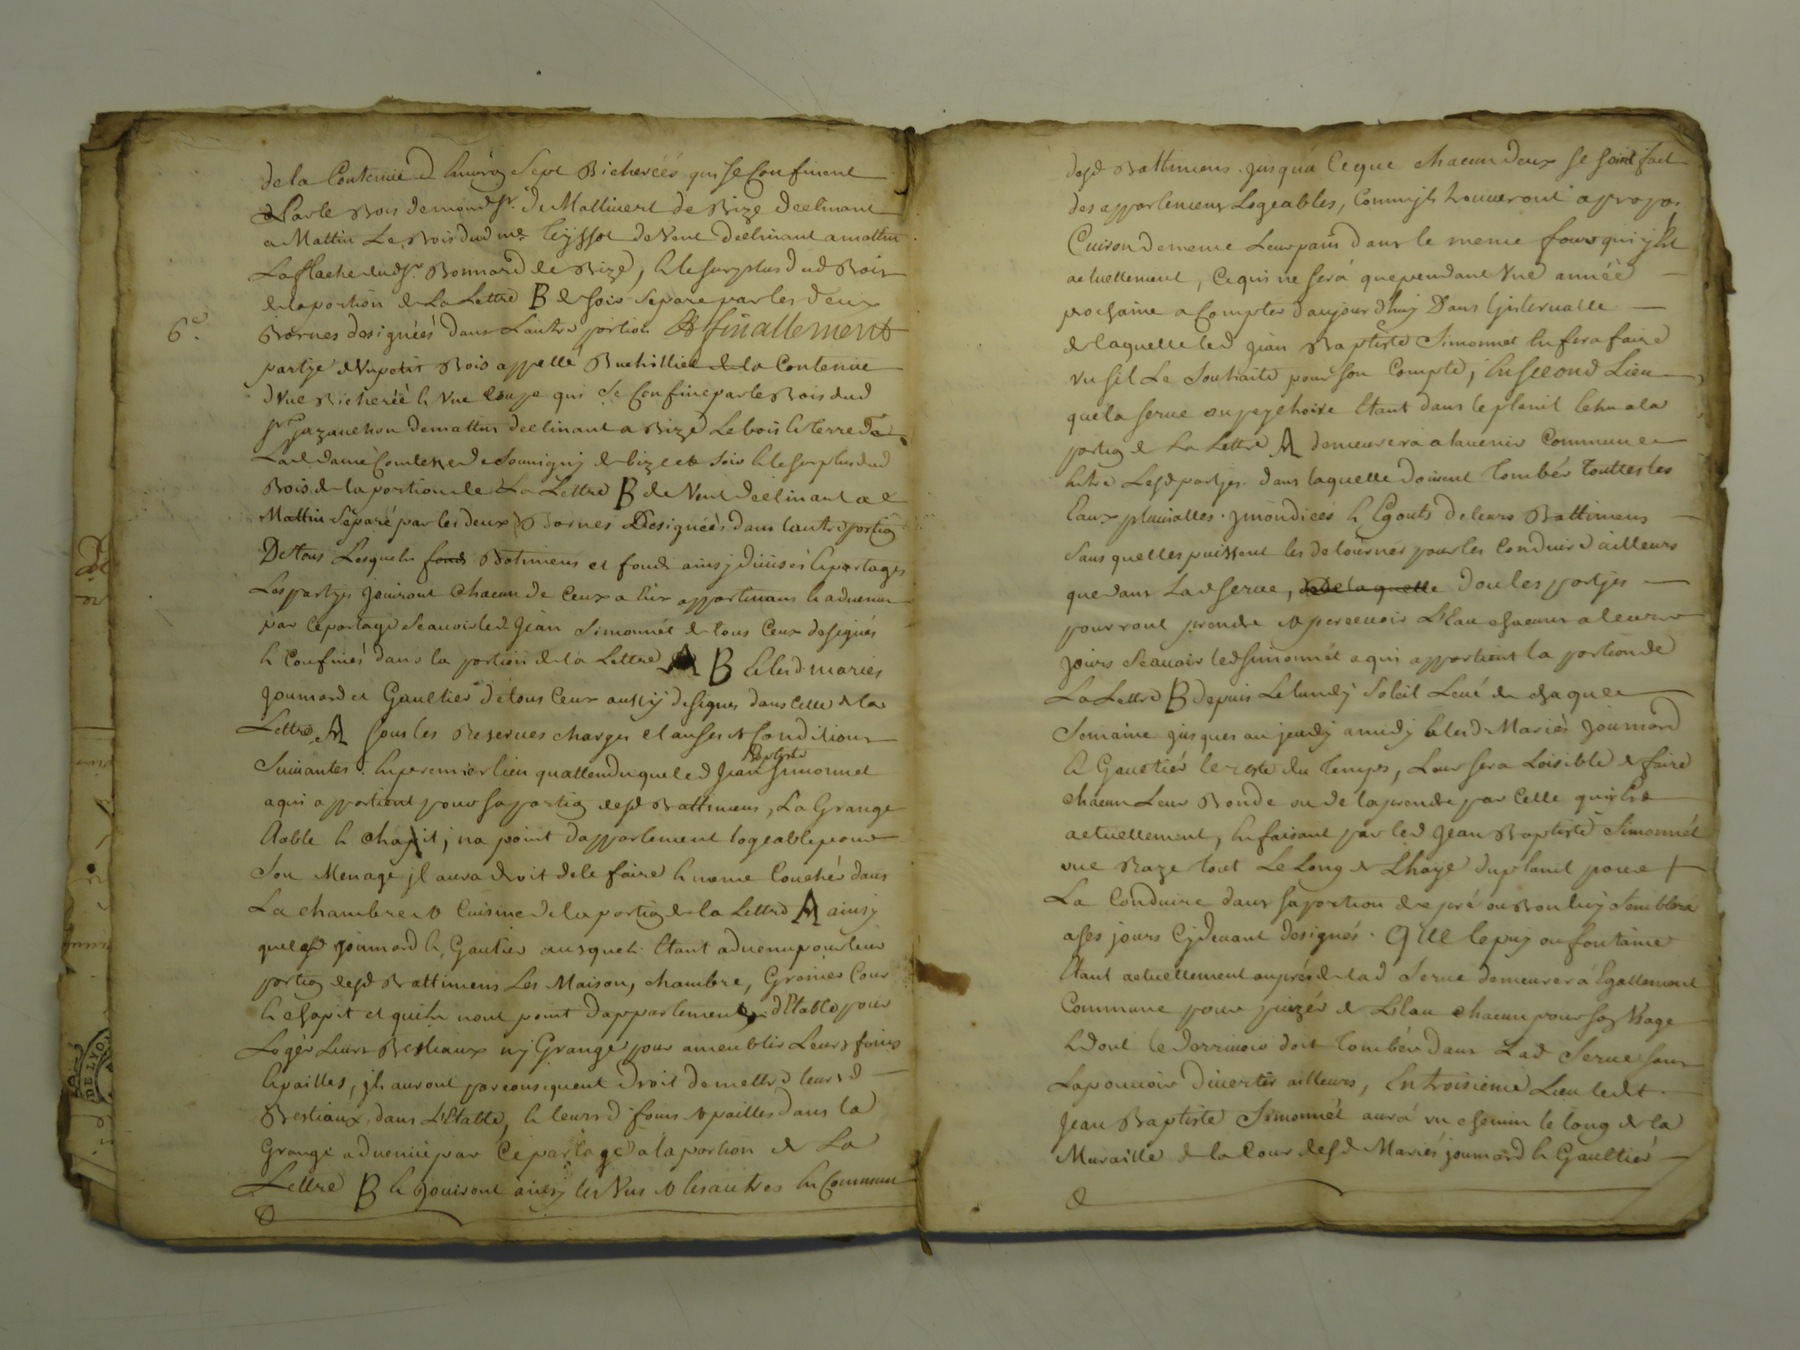 de la Contenue d'Environ Sept Bicherées qui se Confinent
Par le Bois de mond. Sr. De Mallivert de Bize declinant
a Mattin Le Bois dud me. Teyssot de Vent declinant a mattin
La flache dud Sr. Bonnard de Bize, & le surplus dud Bois
de la portion de La Lettre B de soir separe par les deux
6e. Bornes designées dans l'autre portion Et finallement
partye d'Un petit Bois appellé Buchillier de la Contenue
d'Une Bicherée & Une Coupe qui se Confine par le Bois dud
Sr. Jazanchon de mattin declinant a Bize Le bois & terre de
Lad. dame Comtesse de Souvigny de bize et soir & le surplus dud
Bois de la portion de La Lettre B de Vent declinant a
Mattin separé par les deux Bornes Designées dans l'autre portion
De tous Lesquels fonds Batimens et fonds ainsy divisés & partages
Les partyes Jouiront Chacun de Ceux a Eux appartenans & advenus
par Ce partage Scavoir led. Jean Simonnet de tous Ceux designés
& Confinés dans la portion de la Lettre A B & lesd. mariés
Joumard et Gaultier de tous Ceux aussy designes dans Celle de la
Lettre A sous les Reserves charges Clauses & Conditions
Suivantes. En premier lieu qu'attendu que led Jean Baptiste Simonnet
a qui appartient pour sa portion desd Battimens, La Grange
Etable & chapit, n'a point d'appartement logeable pour
Son Menage jl aura droit de le faire & meme Coucher dans
La chambre & Cuisine de la portion de la Lettre A ainsy
que lesd Joumard & Gaultier ausquels Etant advenu pour leur
portion desd Battimens Les Maison, chambre, Grenier Cour
& chapit et qu'ils n'ont point d'appartement d'Etable pour
Loger Leurs Bestiaux ny Grange pour ameublir Leurs foins
& pailles, jls auront par consequent droit de mettre leursd
Bestiaux dans l'Etable, & leursd. foins & pailles dans la
Grange advenue par Ce partage a la portion de La
Lettre B & Jouiront ainsy les Uns & les autres En Commun
desd Battimens. jusqu'a Ce que chacun d'eux se soient fait
des appartemens Logeables, Comm'jls trouveront a propos
Cuiront de meme Leurs pains dans le meme four qui y Est
actuellement, Ce qui ne sera que pendant Une année
prochaine a Compter d'aujourd'huy Dans L'jntervalle
de laquelle led Jean Baptiste Simonnet En fera faire
un s'il Le Souhaite pour son Compte, En second Lieu
que la serve ou peychoire Etant dans le planit Echu a la
portion de La Lettre A demeurera a l'avenir Commune
Entre Lesd partyes. dans laquelle doivent tomber Touttes les
Eaux pluvialles. jmondices & Egouts de leurs Battimens
Sans qu'elles puissent les detourner pour les Conduire d'ailleurs
que dans Lad Serve, de laquelle d'ou les partyes
pourront prendre & percevoir L'Eau chacuns a leurs
Jours Scavoir led Simonnet a qui appartient la portion de
La Lettre B depuis Le lundy Soleil Levé de chaque
Semaine jusques au jeudy a midy & lesd Mariés Joumard
& Gaultier le reste du Temps, Leur sera Loisible de faire
chacun Leur Bonde ou de la prendre par Celle qui Est
actuellement, En faisant par led Jean Baptiste Simonnet
une Raze tout Le Long de L'haye du planit pour
La Conduire dans sa portion de pré ou Bon luy Semblera
a ses jours Cydevant designés. Que le puy ou fontaine
Etant actuellement auprés de lad Serve demeurera Egallement
Commune pour puizer de L'Eau chacun pour son Usage
& dont le Derrivoir doit tomber dans Lad Serve sans
La pouvoir divertir ailleurs, En troisieme Lieu ledt.
Jean Baptiste Simonnet aura un chemin le long de la
Muraille de la Cour desd Mariés joumard & Gaultier